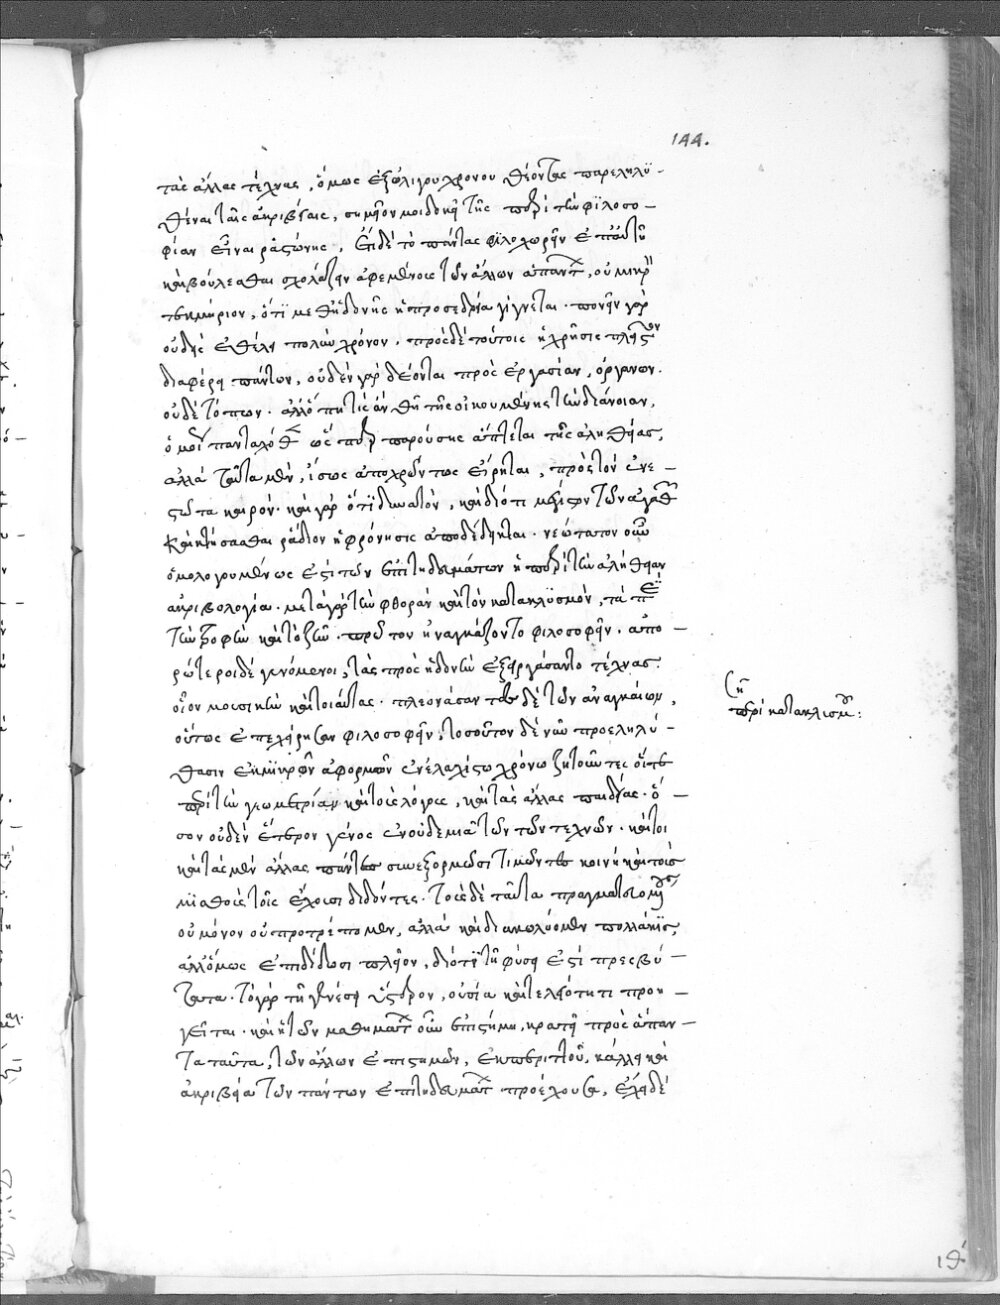 144.
τὰς ἄλλας τέχνας, ὅμως ἐξ ὀλίγου χρόνου θέοντας παρεληλϋ-
θέναι ταῖς ἀκριβείαις, σημεῖον μοι δοκεῖ τῆς περὶ τὴν φϊλοσο-
φίαν εἶναι ῥαστώνης. ἔτι δὲ τὸ πάντας φϊλοχωρεῖν ἐπ' αὐτῇ
καὶ βούλεσθαι σχολάζειν ἀφεμένοις τῶν ἄλλων ἁπάντων, οὐ μικρὸν
τεκμήριον, ὅτϊ μεθ' ἡδονῆς ἡ προσεδρία γίγνεται· πονεῖν γὰρ
οὐδεὶς ἐθέλει πολὺν χρόνον. πρὸς δὲ τούτοις ἡ χρῆσις πλεῖστον
διαφέρει πάντων, οὐδὲν γὰρ δέονται πρὸς ἐργασίαν, ὀργάνων.
οὐδὲ τόπων. ἀλλ' ὅπη τὶς ἂν θῇ τῆς οἰκουμένης τὴν διάνοιαν,
ὁμοίως πανταχόθεν ὥσπερ παρούσης ἅπτεται τῆς ἀληθείας,
ἀλλὰ ταῦτα μὲν, ἴσως ἀποχρώντως εἴρηται, πρὸς τὸν ἐνε-
στῶτα καιρόν. καὶ γὰρ ὅτϊ δυνατὸν, καὶ διότι μέγιστον τῶν ἀγαθῶν
καὶ κτήσασθαι ῥάδιον ἡ φρόνησις ἀποδέδεικται. νεώτατον οὖν
ὁμολογουμένως ἐστὶ τῶν ἐπιτηδευμάτων ἡ περὶ τὴν ἀλήθειαν
ἀκριβολογία. μετὰ γὰρ τὴν φθορὰν καὶ τὸν κατακλϋσμὸν, τὰ περὶ
τὴν τροφὴν καὶ τὸ ζῆν. πρῶτον ἠναγκάζοντο φιλοσοφεῖν. εὐπο-
ρώτεροι δὲ γενόμενοι, τὰς πρὸς ἡδονὴν ἐξειργάσαντο τέχνας.
οἷον μουσικὴν καὶ τοιαύτας. πλεονάσαντες δὲ τῶν ἀναγκαίων,
οὕτως ἐπεχείρησαν φιλοσοφεῖν, τοσοῦτον δὲ νῦν προεληλύ-
θασιν ἐκ μϊκρῶν ἀφορμῶν ἐν ἐλαχίστω χρόνω ζητοῦντες οἵτε
περὶ τὴν γεωμετρίαν καὶ τοὺς λόγους, καὶ τὰς ἄλλας παιδείας. ὅ-
σον οὐδὲν ἕτερον γένος ἐν οὐδεμιᾶ τῶν τεχνῶν. καίτοι
καὶ τὰς μὲν ἄλλας πάντες συνεξορμῶσι τιμῶντες κοινῇ καὶ τοὺς
μϊσθοὺς τοῖς ἔχουσι διδόντες. τοὺς δὲ ταῦτα πραγματευομένους
οὐ μόνον οὐ προτρέπομεν, ἀλλὰ καὶ διακωλύομεν πολλάκϊς,
ἀλλ' ὅμως ἐπιδίδωσι πλεῖον, διότϊ τῇ φύσει ἐστὶ πρεσβύ-
τατα. τὸ γὰρ τῇ γενέσει ὕστερον, οὐσία καὶ τελειότητι προη-
γεῖται. καὶ ἡ τῶν μαθημάτων οὖν ἐπιστήμη, κρατεῖ πρὸς ἅπαν-
τα ταῦτα, τῶν ἄλλων ἐπιστημῶν, ἐκ περιττοῦ, κάλλει καὶ
ἀκριβεία τῶν πάντων ἐπιτηδευμάτων προέχουσα, ἔχει δὲ
ση
περὶ κατακλισμοῦ:
ιθ´